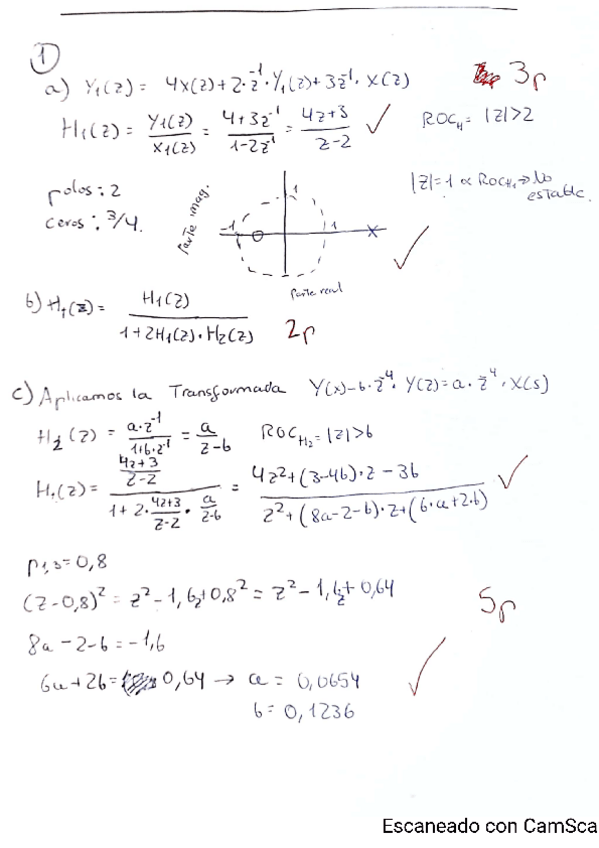 ①
a) Y₁(z) = 4X(z)+2·z⁻¹·Y₁(z)+3z⁻¹·X(z) 3p
H₁(z) = Y₁(z)/X₁(z) = 4+3z⁻¹/1-2z⁻¹ = 4z+3/z-2 ✓ ROC_H = |z|>2
polos: 2
ceros: 3/4.
|z|=1 ∝ ROC_H₁ → No estable.
Parte imag.
1
-1
1
✓
Parte real
b) H₁(z) = H₁(z)/1+2H₁(z)·H₂(z) 2p
c) Aplicamos la Transformada Y(x)-b·z⁻¹·Y(z)=a·z⁻¹·X(s)
H₂(z) = a·z⁻¹/1+b·z⁻¹ = a/z-b ROC_H₂ = |z|>b
H₁(z) = 4z+3/z-2 / 1+2·4z+3/z-2·a/z-b = 4z²+(3-4b)·z-3b / z²+(8a-2-b)·z+(6·a+2·b) ✓
p₁,₂=0,8
(z-0,8)² = z²-1,6z+0,8² = z²-1,6z+0,64
5p
8a-2-b=-1,6
6a+2b= 0,64 → a = 0,0654 ✓
b = 0,1236
Escaneado con CamSca